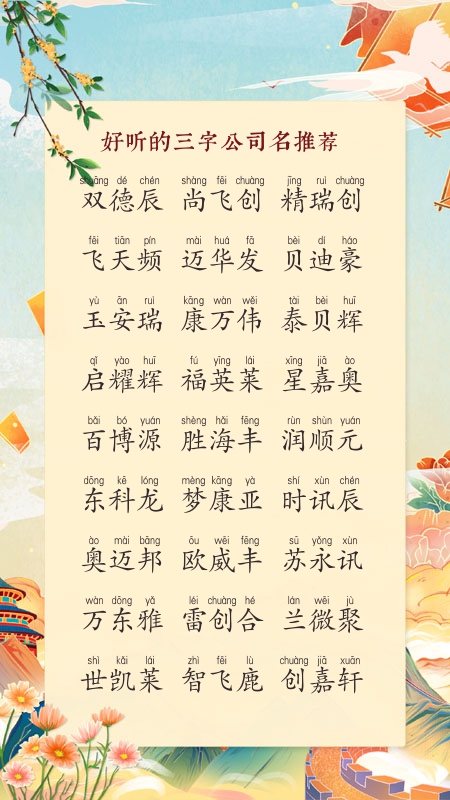 好听的三字公司名推荐
shuāng dé chén shàng fēi chuàng jīng ruì chuàng
双德辰 尚飞创 精瑞创
fēi tiān pín mài huá fā bèi dí háo
飞天频 迈华发 贝迪豪
yù ān ruì kāng wàn wěi tài bèi huī
玉安瑞 康万伟 泰贝辉
qǐ yào huī fú yīng lái xīng jiā ào
启耀辉 福英莱 星嘉奥
bǎi bó yuán shèng hǎi fēng rùn shùn yuán
百博源 胜海丰 润顺元
dōng kē lóng mèng kāng yà shí xùn chén
东科龙 梦康亚 时讯辰
ào mài bāng ōu wēi fēng sū yǒng xùn
奥迈邦 欧威丰 苏永讯
wàn dōng yǎ léi chuàng hé lán wēi jù
万东雅 雷创合 兰微聚
shì kǎi lái zhì fēi lù chuàng jiā xuān
世凯莱 智飞鹿 创嘉轩